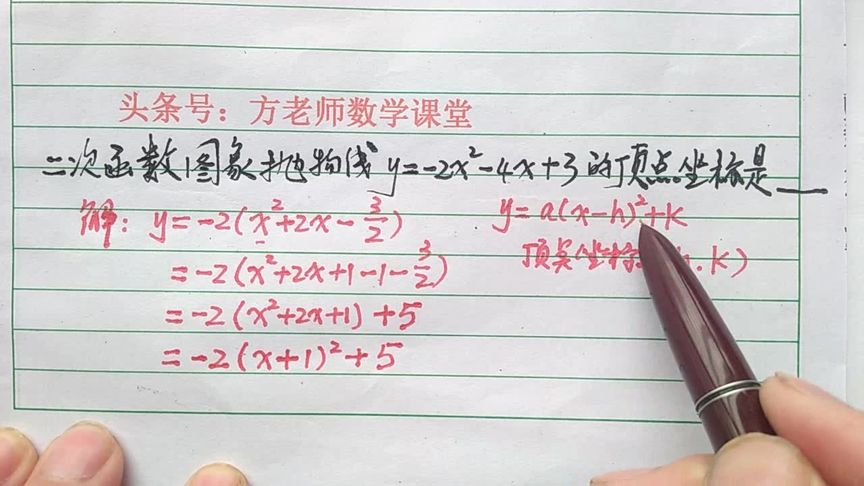 头条号：方老师数学课堂
二次函数图象抛物线y=-2x²-4x+3的顶点坐标是___
解：y=-2(x²+2x-3/2)
=-2(x²+2x+1-1-3/2)
=-2(x²+2x+1)+5
=-2(x+1)²+5
y=a(x-h)²+k
顶点坐标 h.k)